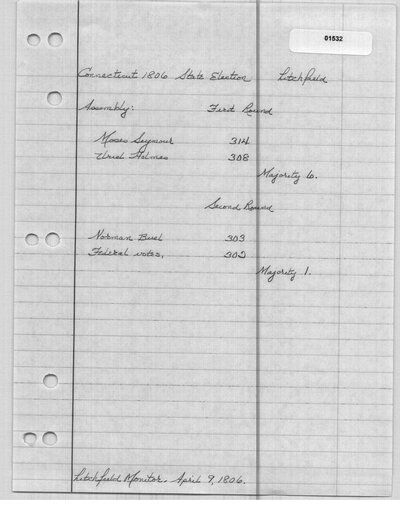 01532
Connecticut 1806 State Election Litchfield
Assembly: First Round
Moses Seymour 314
Uriel Holmes 308
Majority 6.
Second Round
Norman Buel 303
Federal votes. 302
Majority 1.
Litchfield Monitor. April 9, 1806.